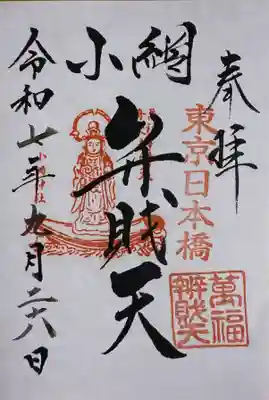 奉拝
東京日本橋
萬福
辨財天
小網
弁財天
令和七年九月二六日